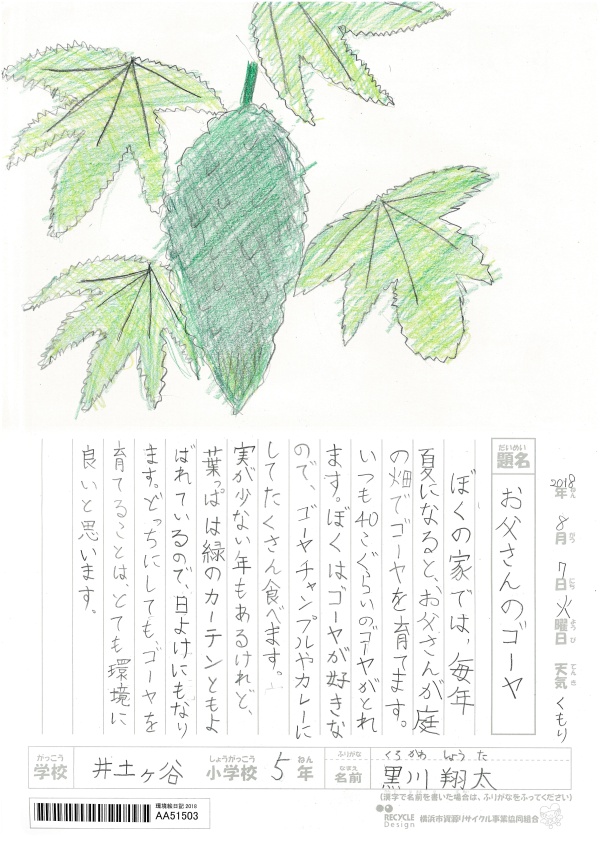 2018年ねん 8月がつ 7日にち 火曜日ようび 天気てんき くもり
題名だいめい
お父さんのゴーヤ
ぼくの家では、毎年
夏になると、お父さんが庭
の畑でゴーヤを育てます。
いつも40こぐらいのゴーヤがとれ
ます。ぼくはゴーヤが好きな
ので、ゴーヤチャンプルやカレーに
してたくさん食べます。
実が少ない年もあるけれど、
葉っぱは緑のカーテンともよ
ばれているので、日よけにもなり
ます。どっちにしても、ゴーヤを
育てることは、とても環境に
良いと思います。
がっこう しょうがっこう ねん ふりがな くろ かわ しょう た
学校 井土ヶ谷 小学校 5年 なまえ 名前 黒川 翔太
(漢字で名前を書いた場合は、ふりがなをふってください)
環境絵日記2018
AA51503
RECYCLE Design 横浜市資源リサイクル事業協同組合